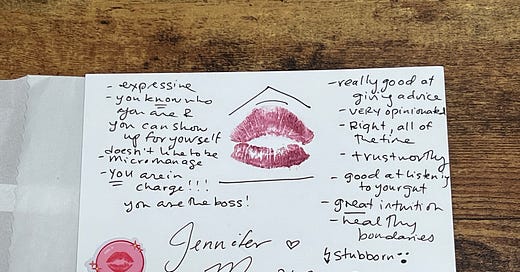 - expressive
- you know who
you are &
you can show
up for yourself
doesn't like to be
- micromanage
- you are in
charge!!!
you are the boss!
- really good at
giving advice
- very opinionated
- Right, all of
the time
- trustworthy
- good at listening
to your gut
- great intuition
- healthy
boundaries
stubborn
Jennifer